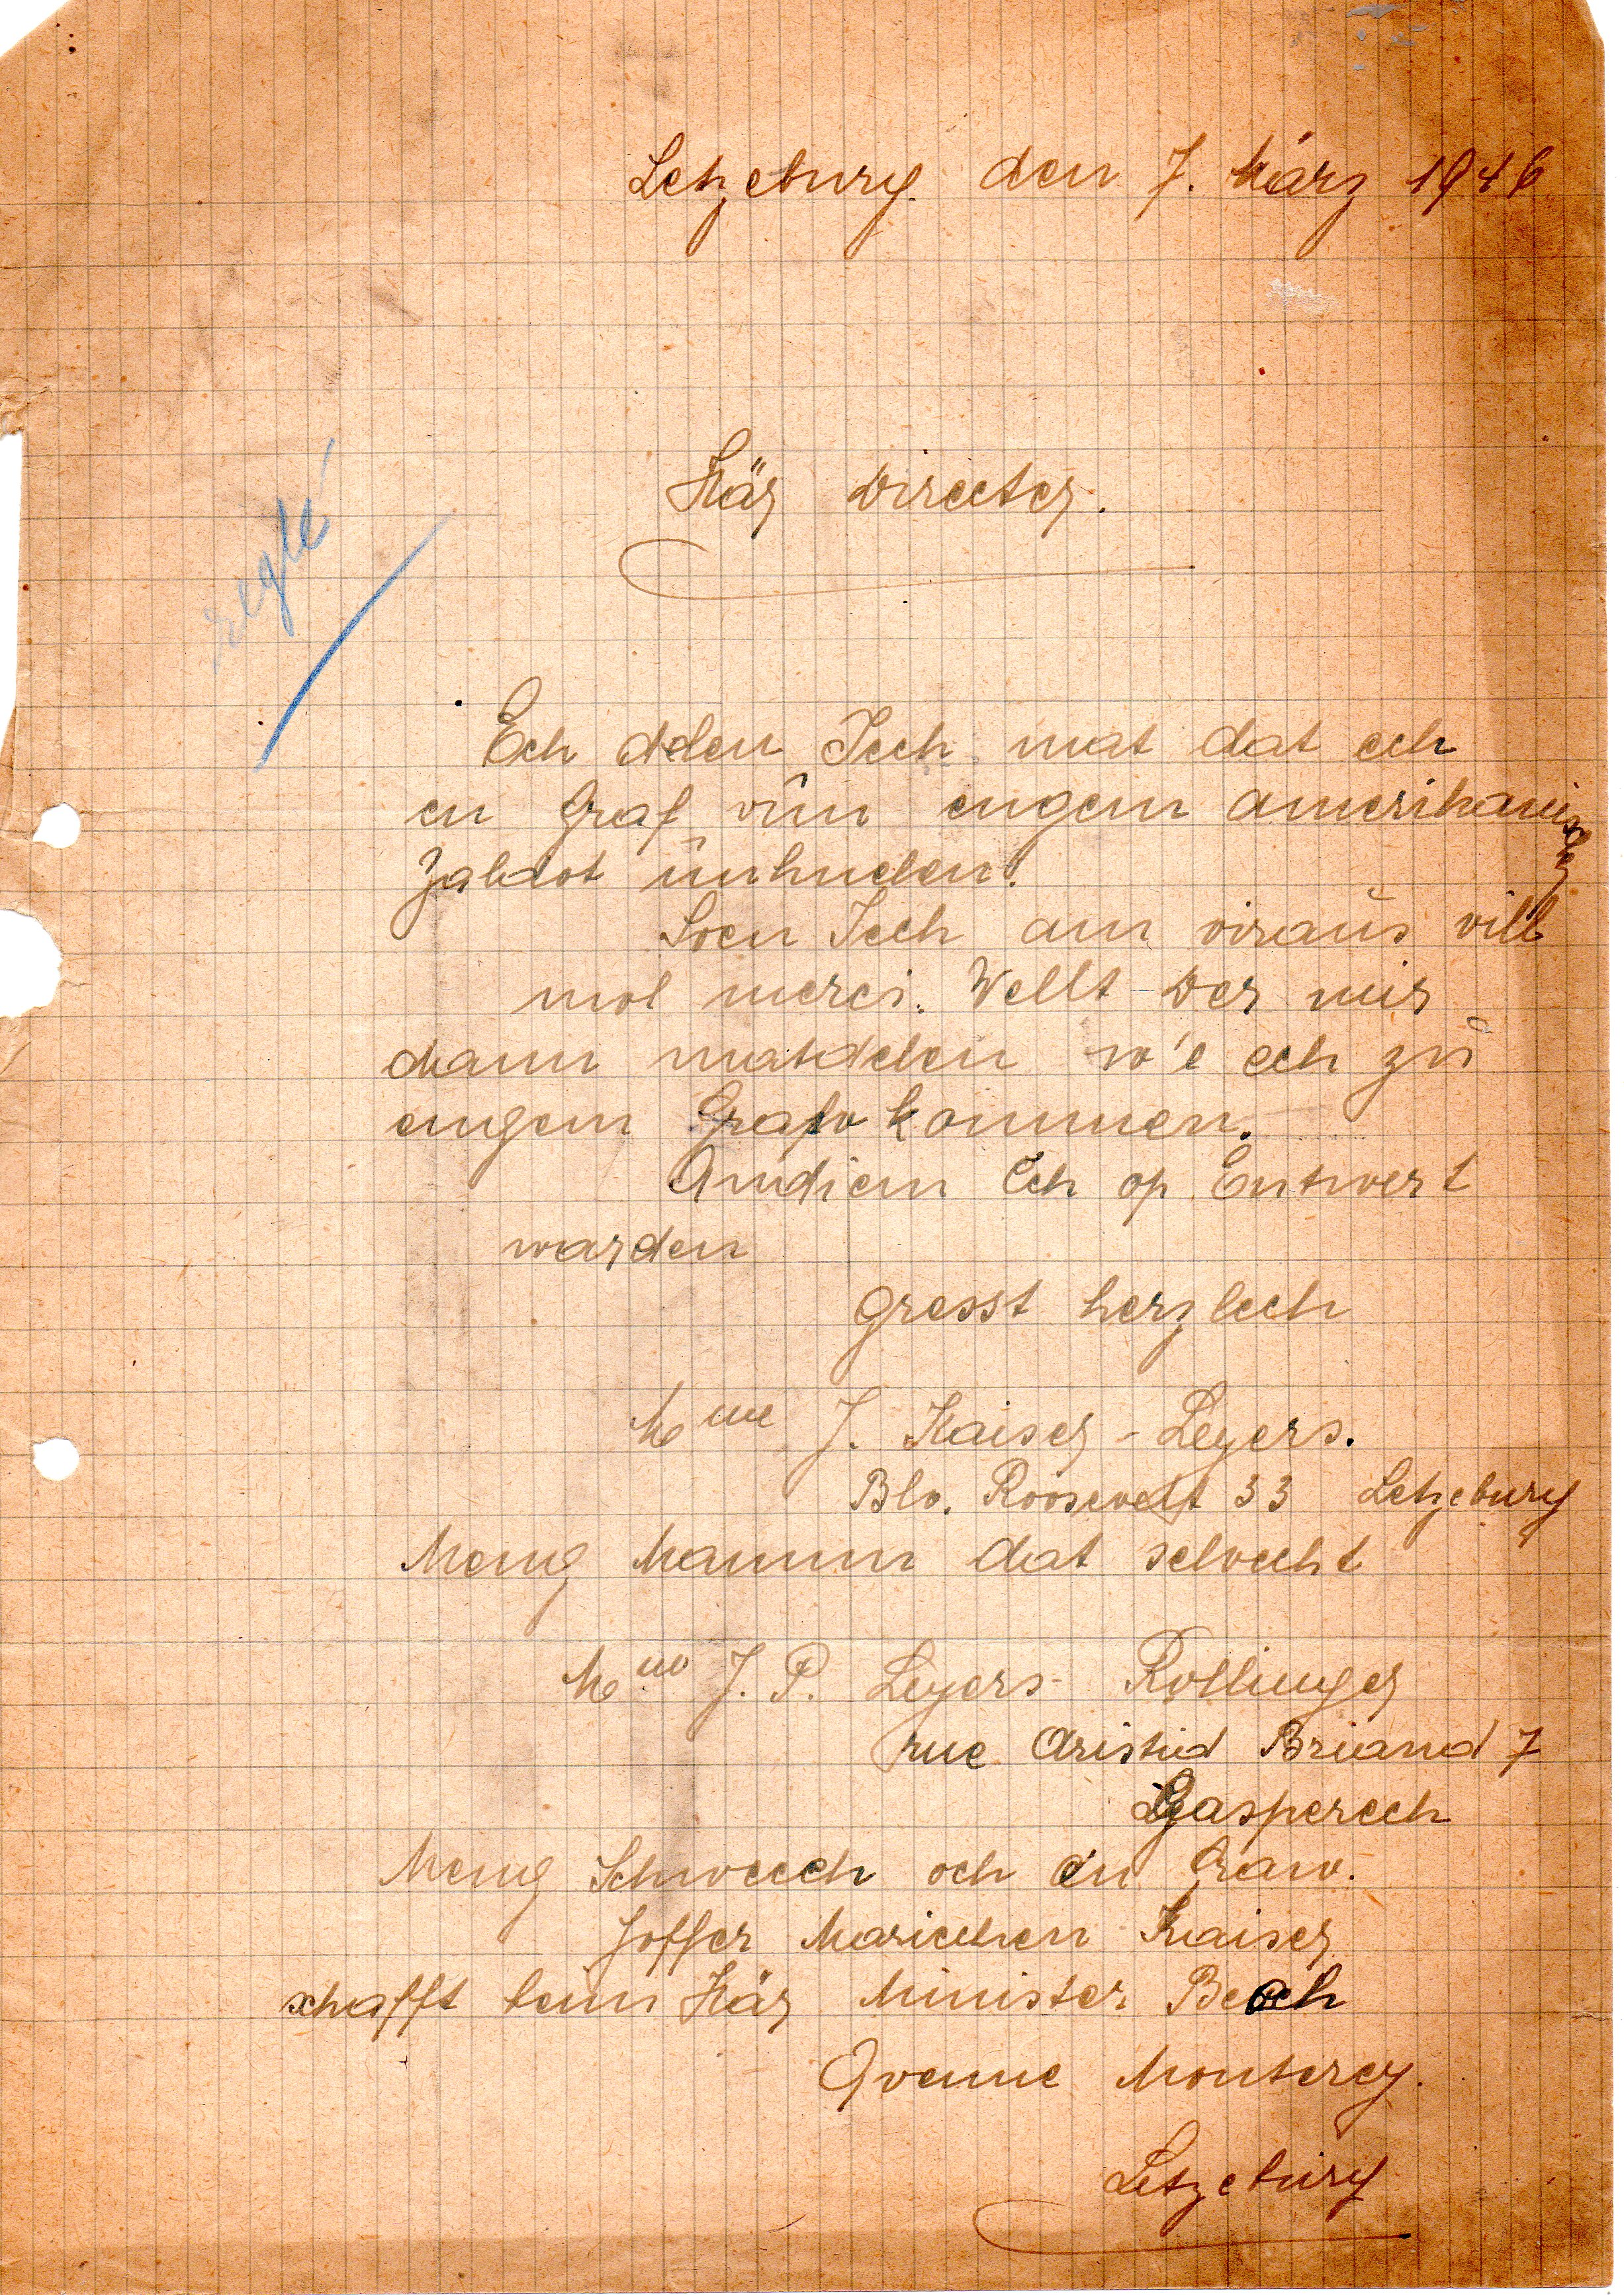 Letzeburg den 7. März 1946
Här Directer.
reglé
Ech delen Iech mat dat ech
en Graf vun engem amerikanischer
Zaldot unhuelen.
Soen Iech am viraus vill
mol merci. Wellt Der mir
dann matdelen w'e ech zu
engem Graf kommen.
Andiem Ech op Entwert
warden
gresst herzlech
Mme J. Kaiser-Leyers.
Blv. Roosevelt 33 Letzeburg
Meng Mamm dat selwecht
Mme J. P. Leyers-Rollinger
rue Aristid Briand 7
Gasperech
Meng Schwecch och en Graw.
Joffer Mariechen Kaiser
schafft beim Här Minister Bech
Avenue Monterey.
Letzeburg